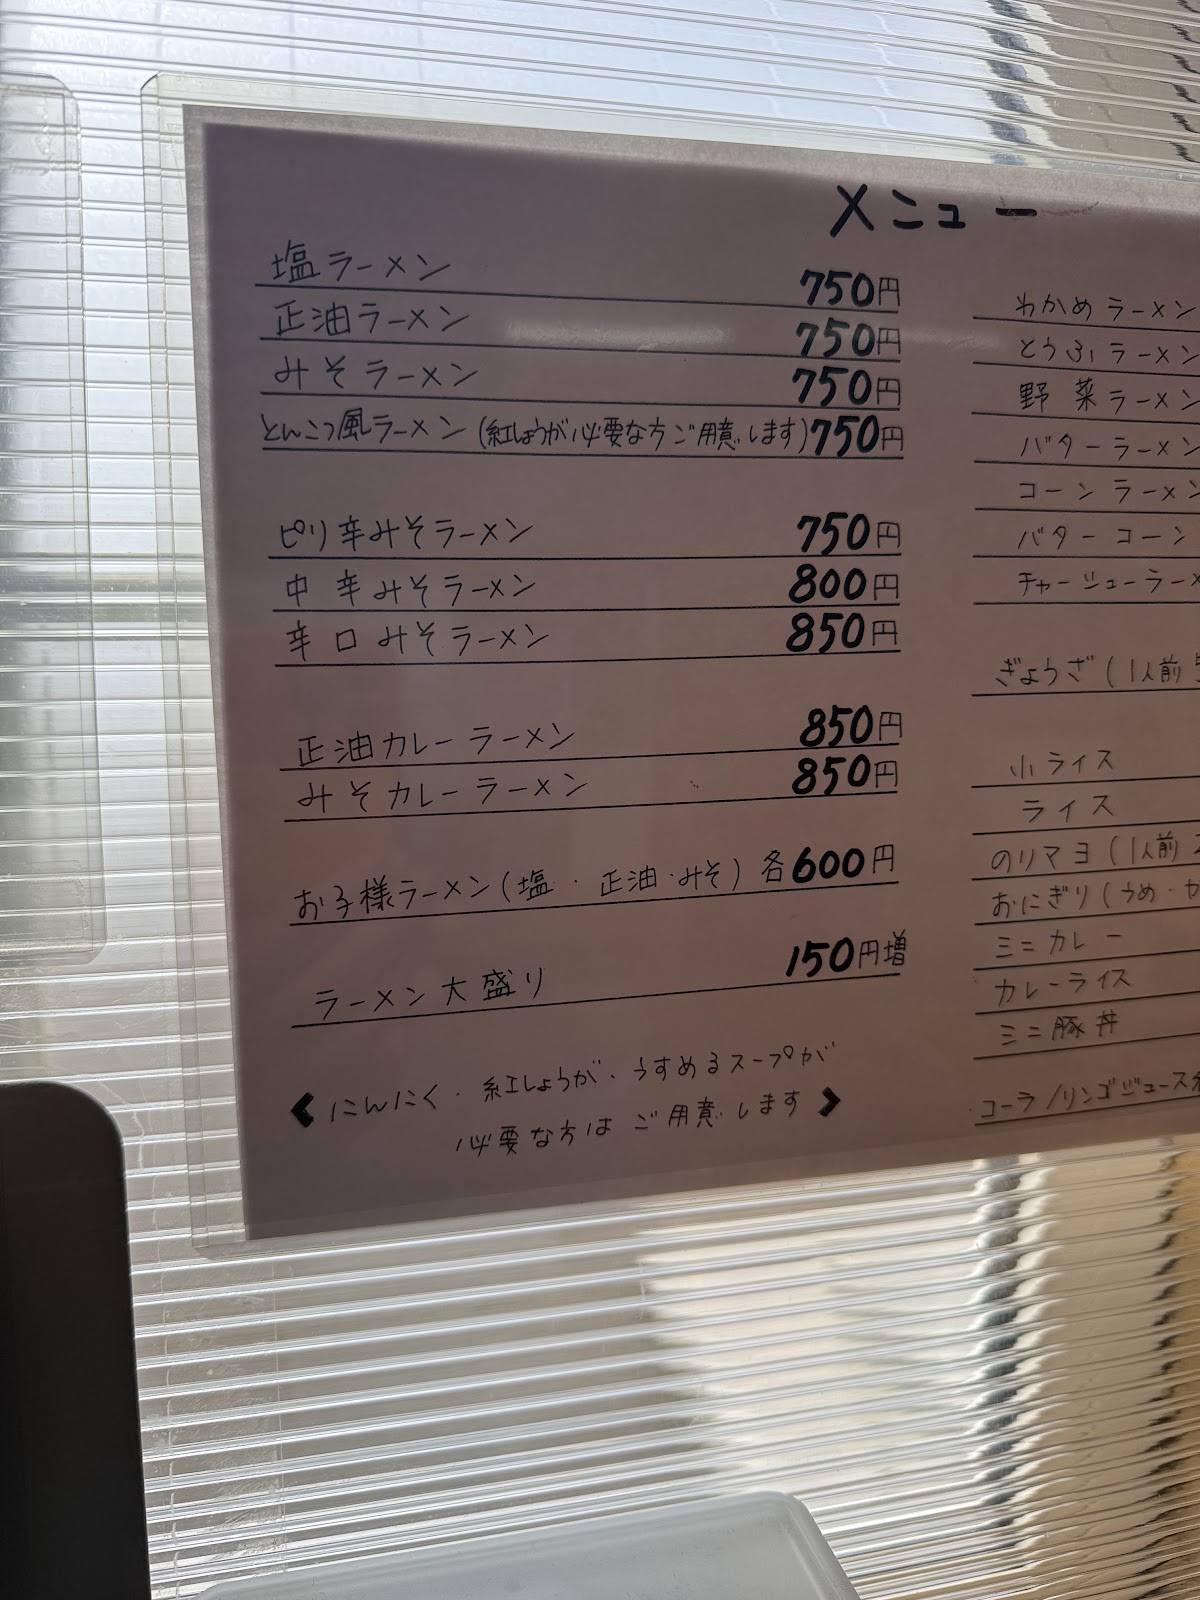 メニュー
塩ラーメン 750円
正油ラーメン 750円
みそラーメン 750円
とんこつ風ラーメン (紅しょうが必要な方ご用意します) 750円
ピリ辛みそラーメン 750円
中辛みそラーメン 800円
辛口みそラーメン 850円
正油カレーラーメン 850円
みそカレーラーメン 850円
お子様ラーメン(塩・正油・みそ) 各600円
ラーメン大盛り 150円増
<にんにく・紅しょうが・うすめるスープが
必要な方はご用意します>
わかめラーメン
とうふラーメン
野菜ラーメン
バターラーメン
コーンラーメン
バターコーン
チャーシューラーメ
ぎょうざ(1人前
小ライス
ライス
のりマヨ(1人前
おにぎり(うめ・
ミニカレー
カレーライス
ミニ豚丼
コーラ/リンゴジュース